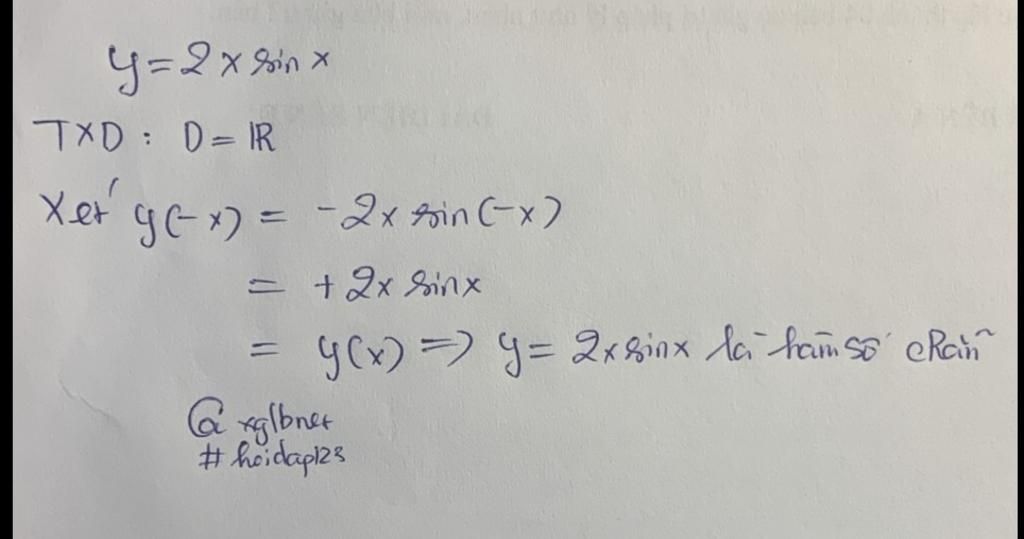 y = 2x sin x
TXD : D = ℝ
Xét y(-x) = -2x sin(-x)
= +2x sinx
= y(x) => y = 2x sinx là hàm số chẵn
@xglbnet
#hoidap123